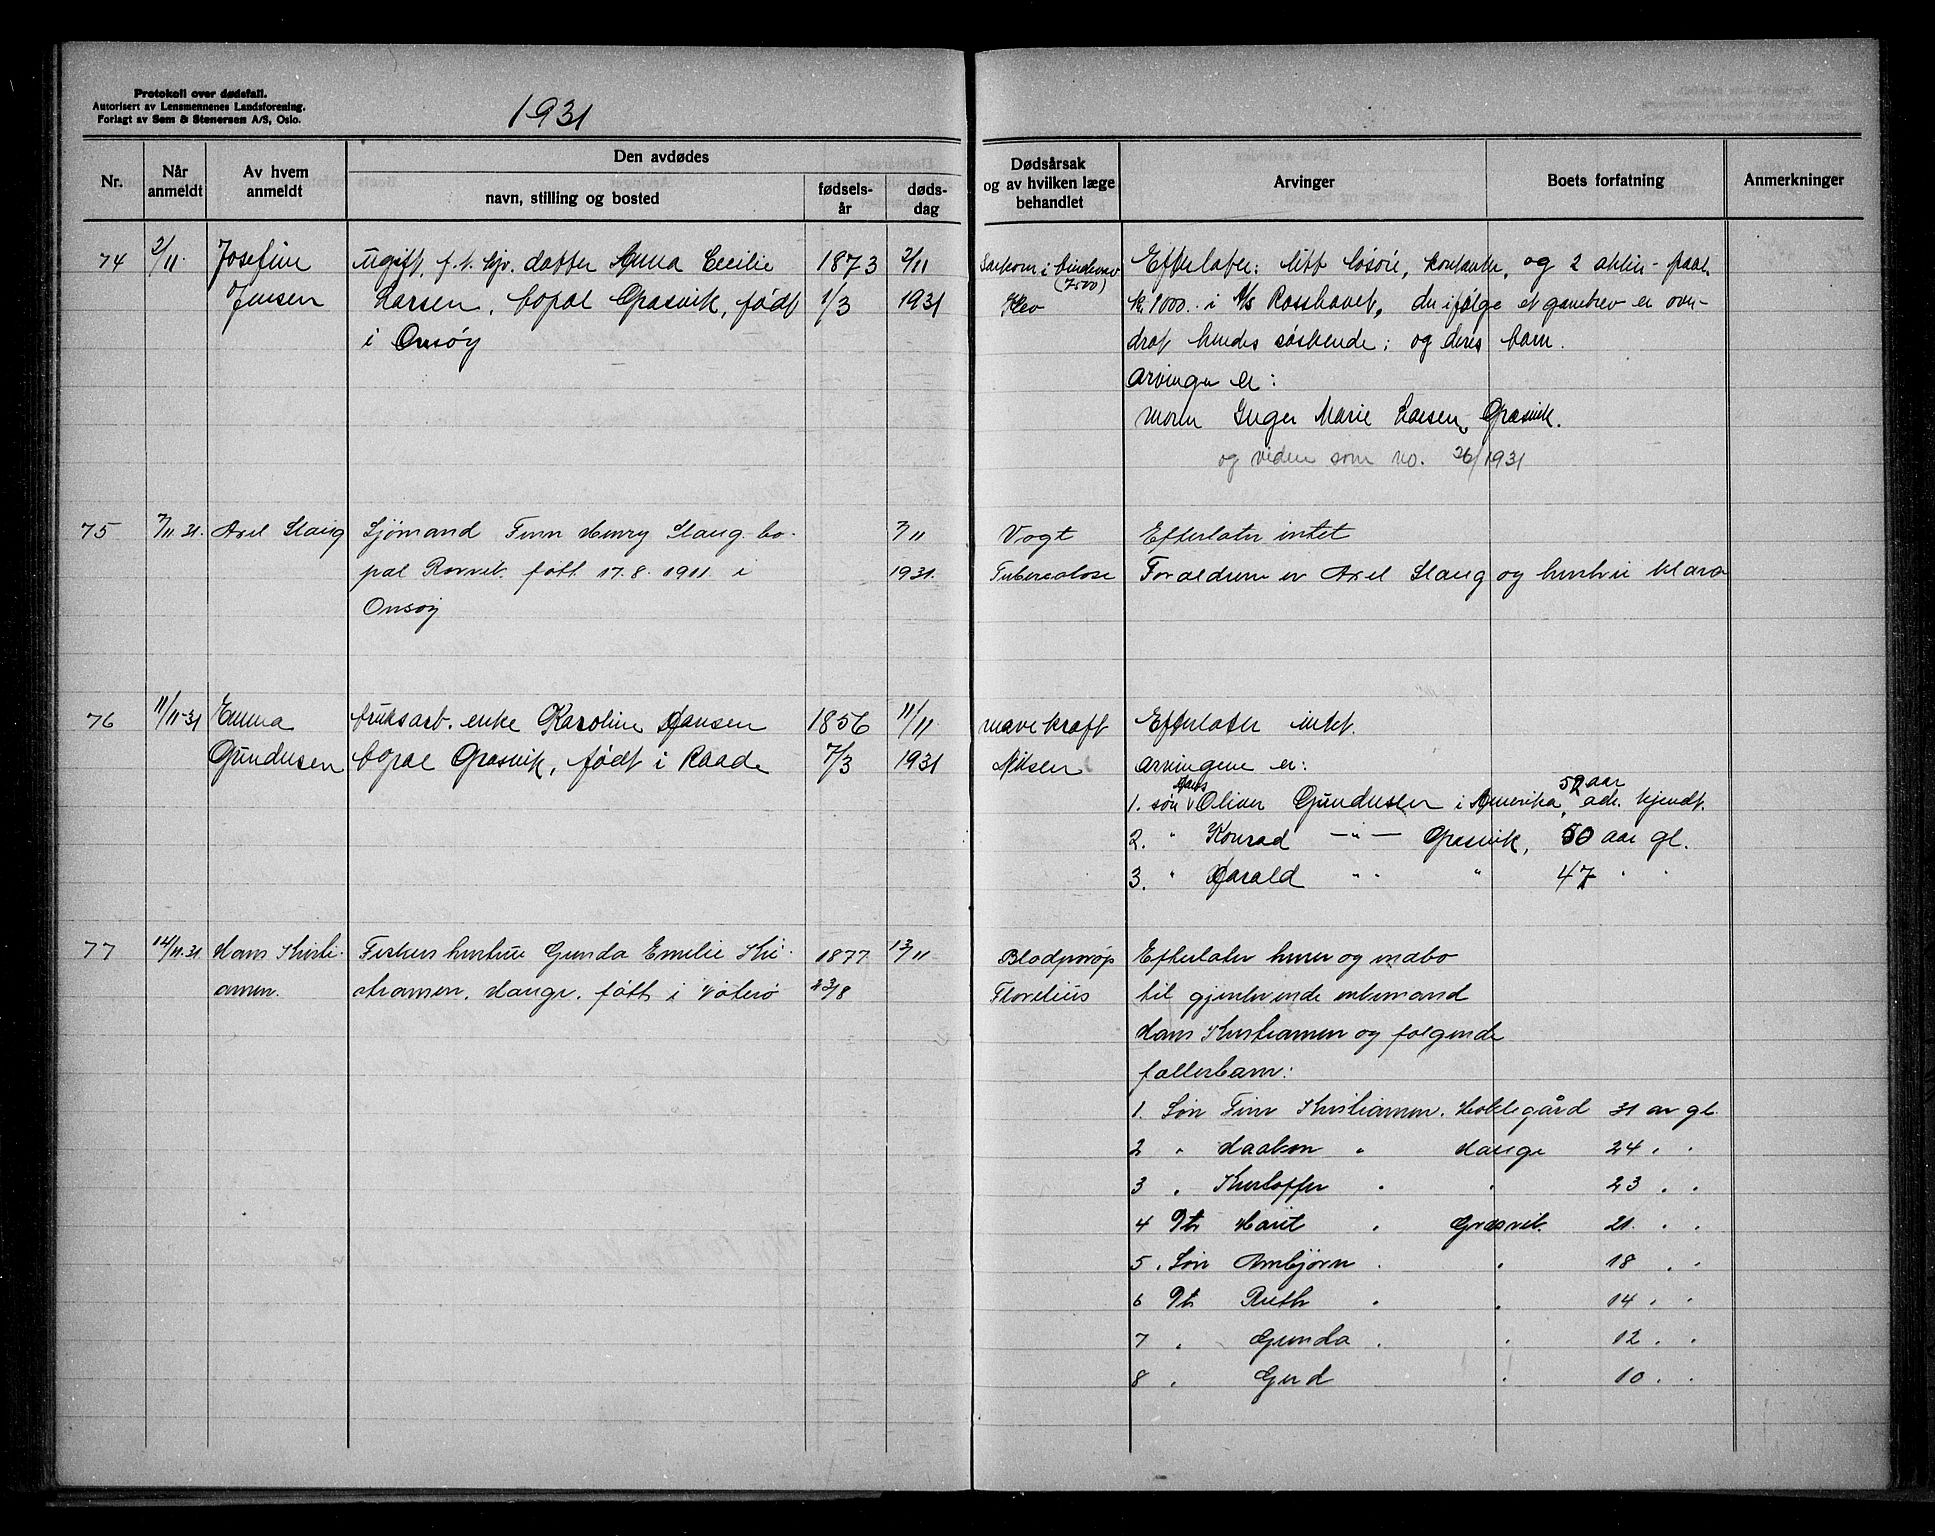 Protokoll over dødsfall.
Autorisert av Lensmennenes Landsforening.
Forlagt av Sem & Stenersen A/S, Oslo.
1931
Nr.
Når anmeldt
Av hvem anmeldt
Den avdødes
navn, stilling og bosted
fødsels-år
døds-dag
Dødsårsak
og av hvilken læge
behandlet
Arvinger
Boets forfatning
Anmerkninger
74 2/11. Josefine ugift, f. t. hjv. datter Anna Cecilie 1873 2/11
Jensen Larsen, bopæl Græsvik, født 1/3 1931
i Onsøy
Sarkom i
(7500)
Kiev
Efterlater: litt løsøre, kontanter, og 2 aktier - paal.
kr. 1000. i A/S Rosshavet, der ifølge et gavebrev er over-
drat hendes søskende; og deres barn.
Arvinger er:
moren Inger Marie Larsen, Græsvik.
og videre som no. 26/1931
75 7/11 31. Axel Slang Sjømand Finn Henry Slang bo- 7/11
pæl født 17. 8. 1911 i 1931.
Onsøy
Vogt Efterlater intet
Tuberculose Forældrene er Axel Slang og hustru Klara
76 11/11-31 Emma bruksarb. enke Karoline Hansen 1856 11/11
Gundersen bopæl Græsvik, født i Raade 7/3 1931
mavekræft Efterlater intet.
Nilsen Arvingene er:
52 aar
1. søn Hans Oliver Gundersen i Amerika, adr. kjendt.
2. " Konrad —"— Græsvik, 50 aar gl.
3. " Harald " " " 47 " "
77 14/11.31 Hans Kristi- Fiskers hustru Gunda Emilie Kri- 1877 13/11
ansen. stiansen, Hauge, født i 23/8
Blodprop Efterlater huser og indbo
Florelius til gjenlevende enkemand
Hans Kristiansen og følgende
fællesbarn:
1. Søn Finn Kristiansen, Holtegård 31 år gl.
2 " Haakon " Hauge 24 " "
3 " Kristoffer " " 23 " "
4 Dtr Marit " Græsvik. 21 " "
5. Søn Arnbjørn " " 18 " "
6 Dtr Ruth " " 14 " "
7 " Gunda " " 12 " "
8 " Gerd " 10 " "